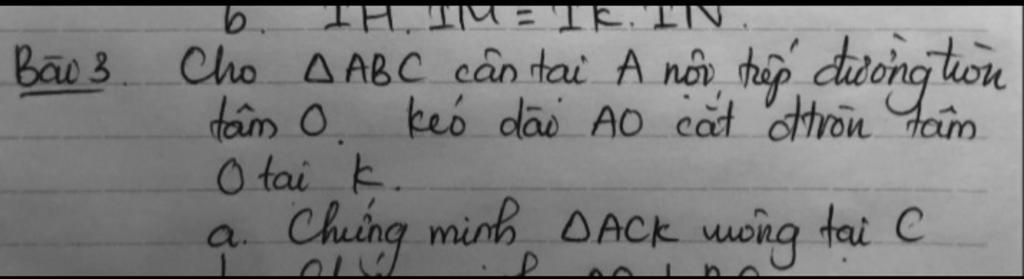 b. IH. IM = IK. IN.
Bài 3. Cho ΔABC cân tại A nội tiếp đường tròn
tâm O. Kéo dài AO cắt đtròn tâm
O tại K.
a. Chứng minh ΔACK vuông tại C